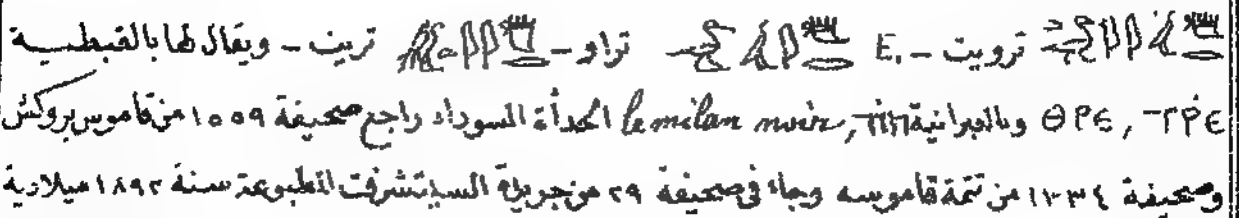 ترويت - E. تراو - تريت - ويقال لها بالقبطية
ⲑⲣⲉ , ⲧⲣⲉ وبالعبرانية le milan noir, الحدأة السوداء راجع صحيفة ١٥٥٩ من قاموس بروكش
وصحيفة ١٣٣٤ من تتمة قاموسه وجاء في صحيفة ٢٩ من جريدة السيتشرفت المطبوعة سنة ١٨٩٢ ميلادية